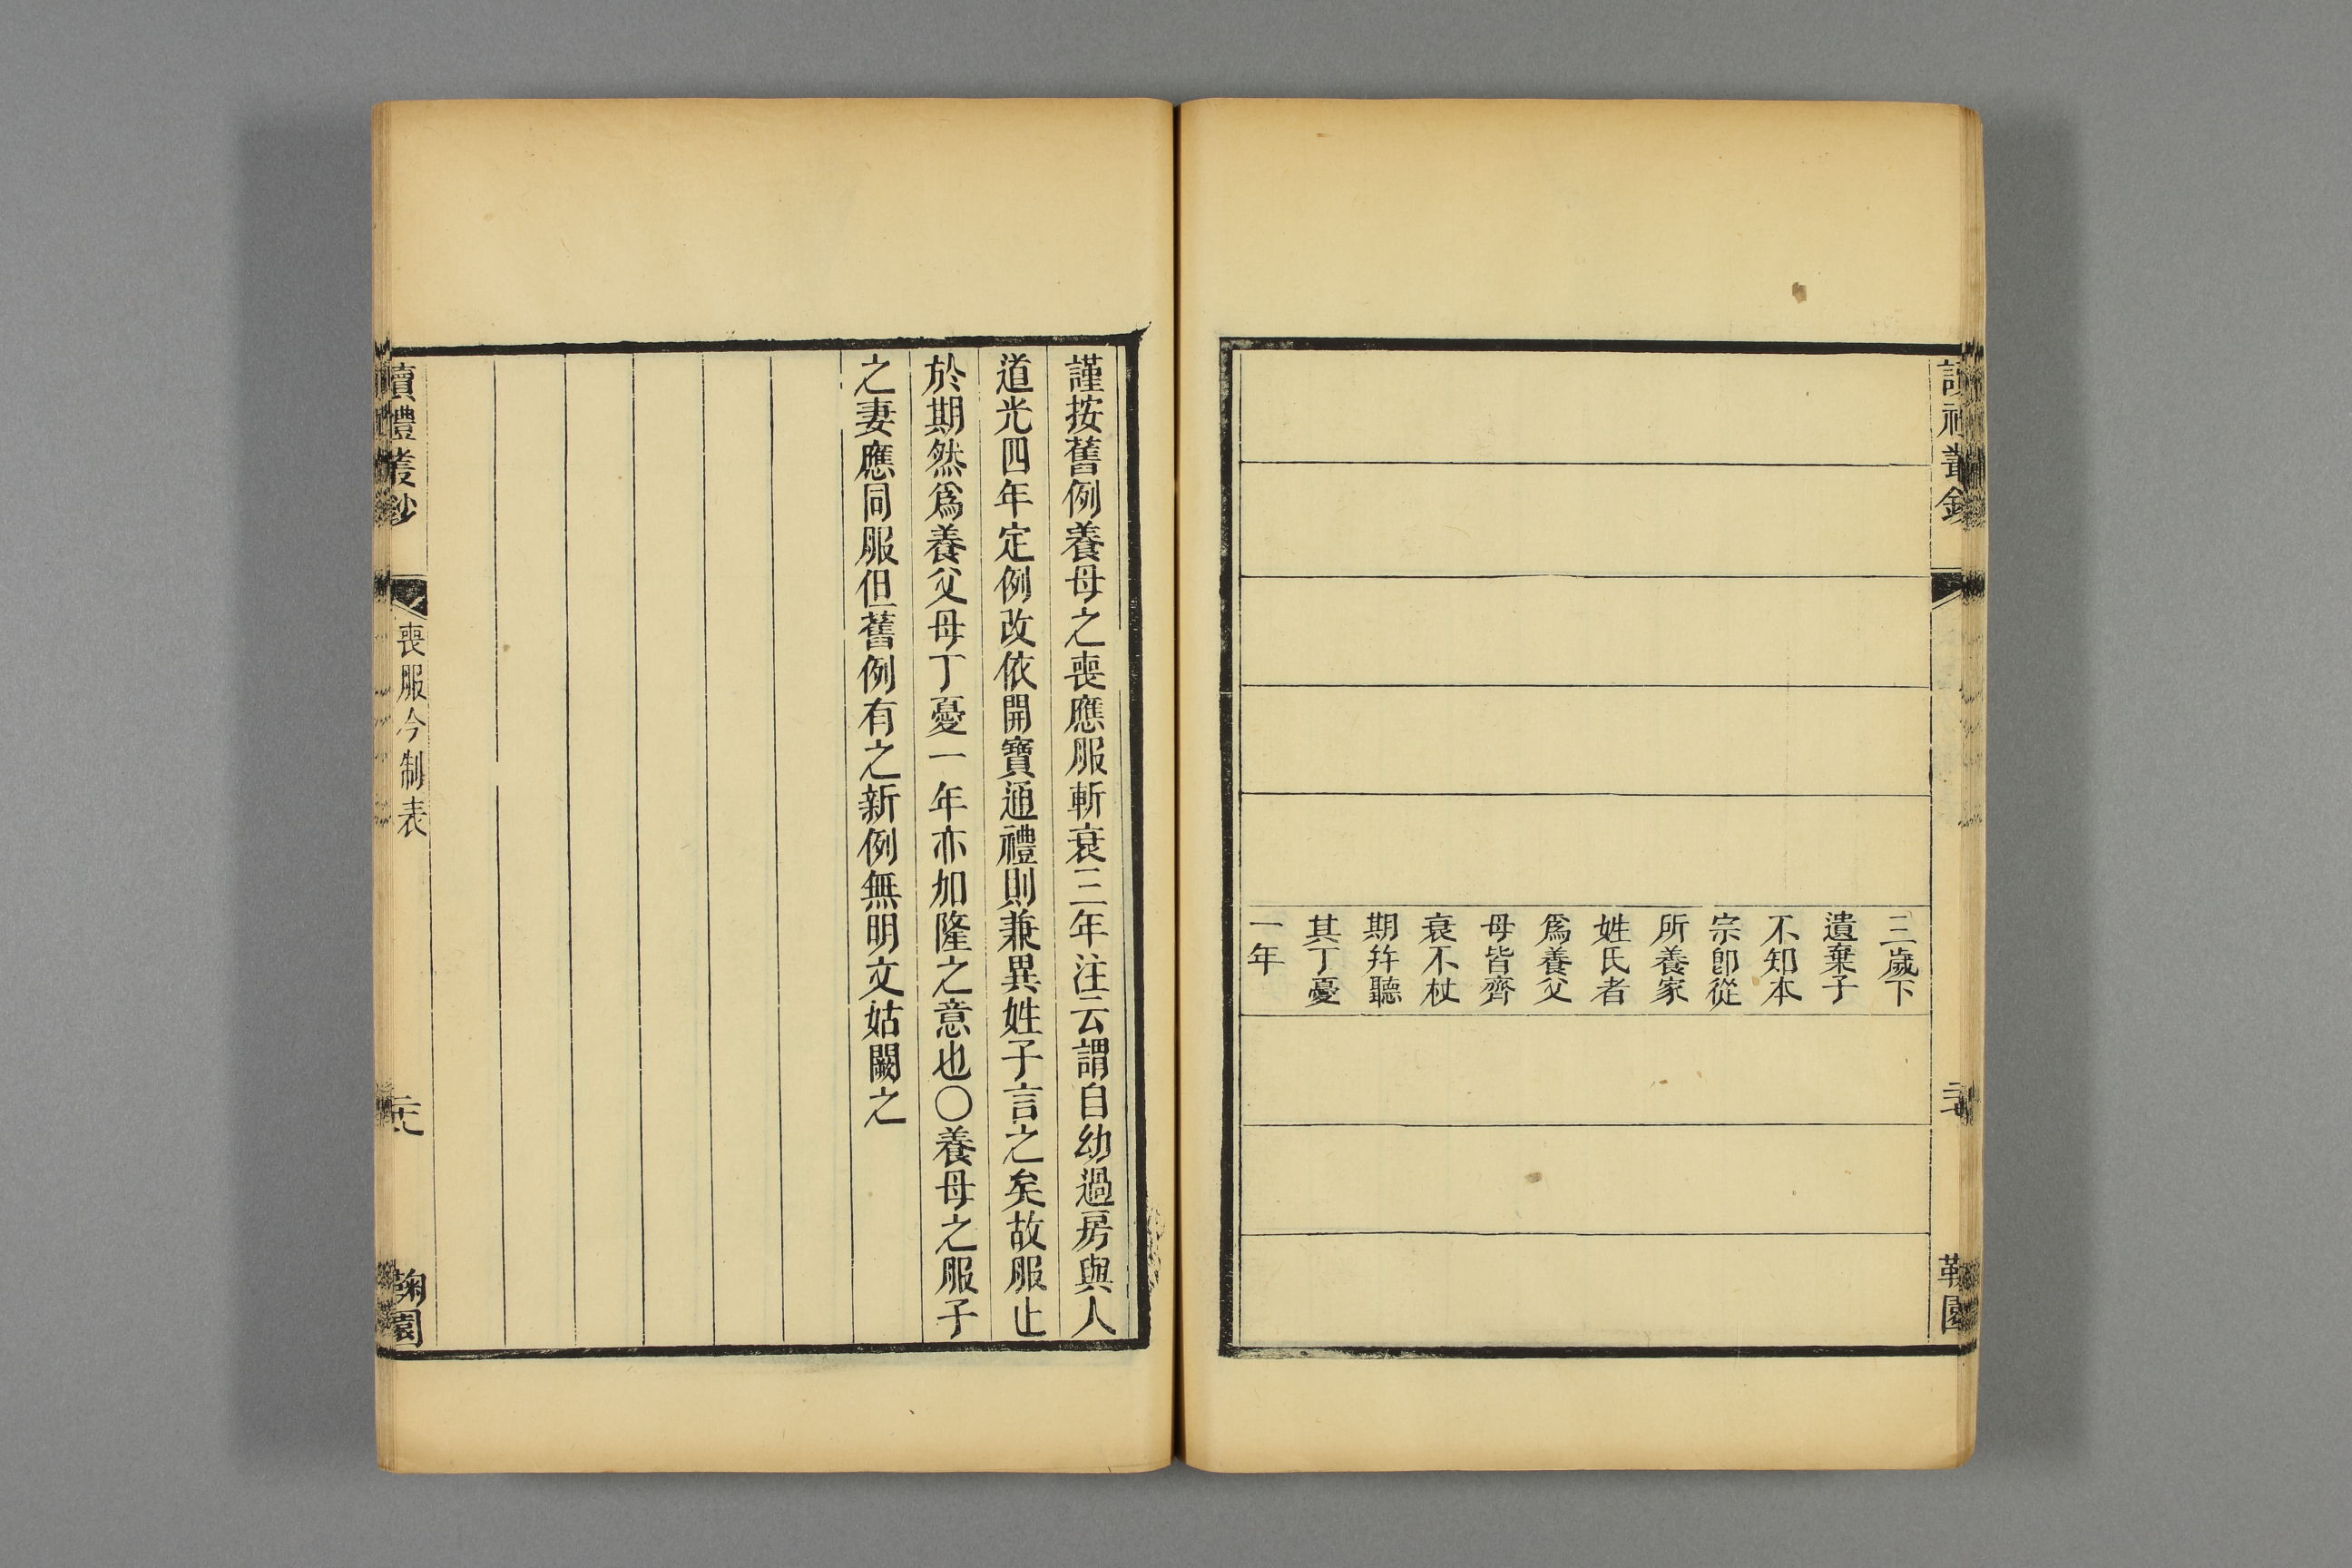 三歲下
遺棄子
不知本
宗卽從
所養家
姓氏者
爲養父
母皆齊
衰不杖
期幷聽
其丁憂
一年
謹按舊例養母之喪應服斬衰三年注云謂自幼過房與人
道光四年定例改依開寶通禮則兼異姓子言之矣故服止
於期然爲養父母丁憂一年亦加隆之意也〇養母之服子
之妻應同服但舊例有之新例無明文姑闕之
讀禮叢鈔
喪服今制表
鞠園